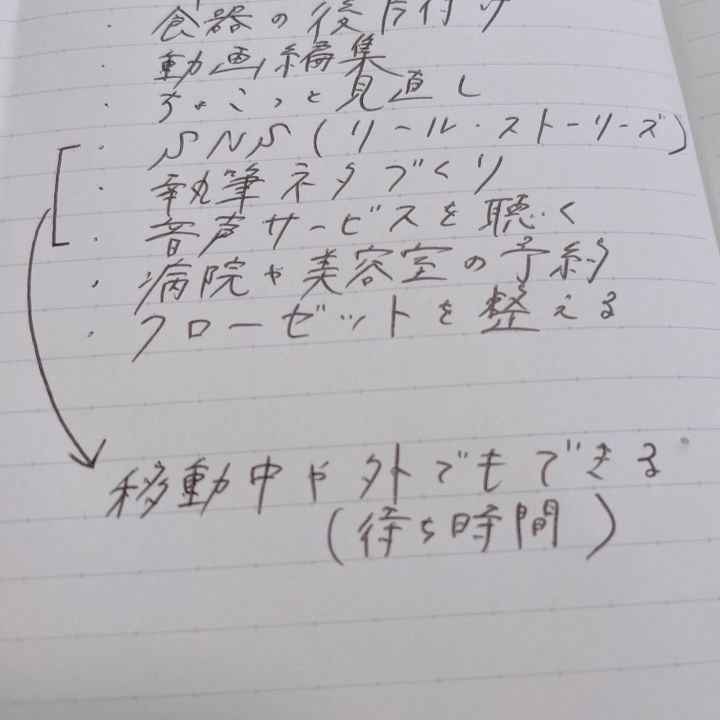 ・食器の後片付け
・動画編集
・ちょこっと見直し
・SNS(リール・ストーリーズ)
・執筆ネタづくり
・音声サービスを聴く
・病院や美容室の予約
・クローゼットを整える
移動中や外でもできる
(待ち時間)